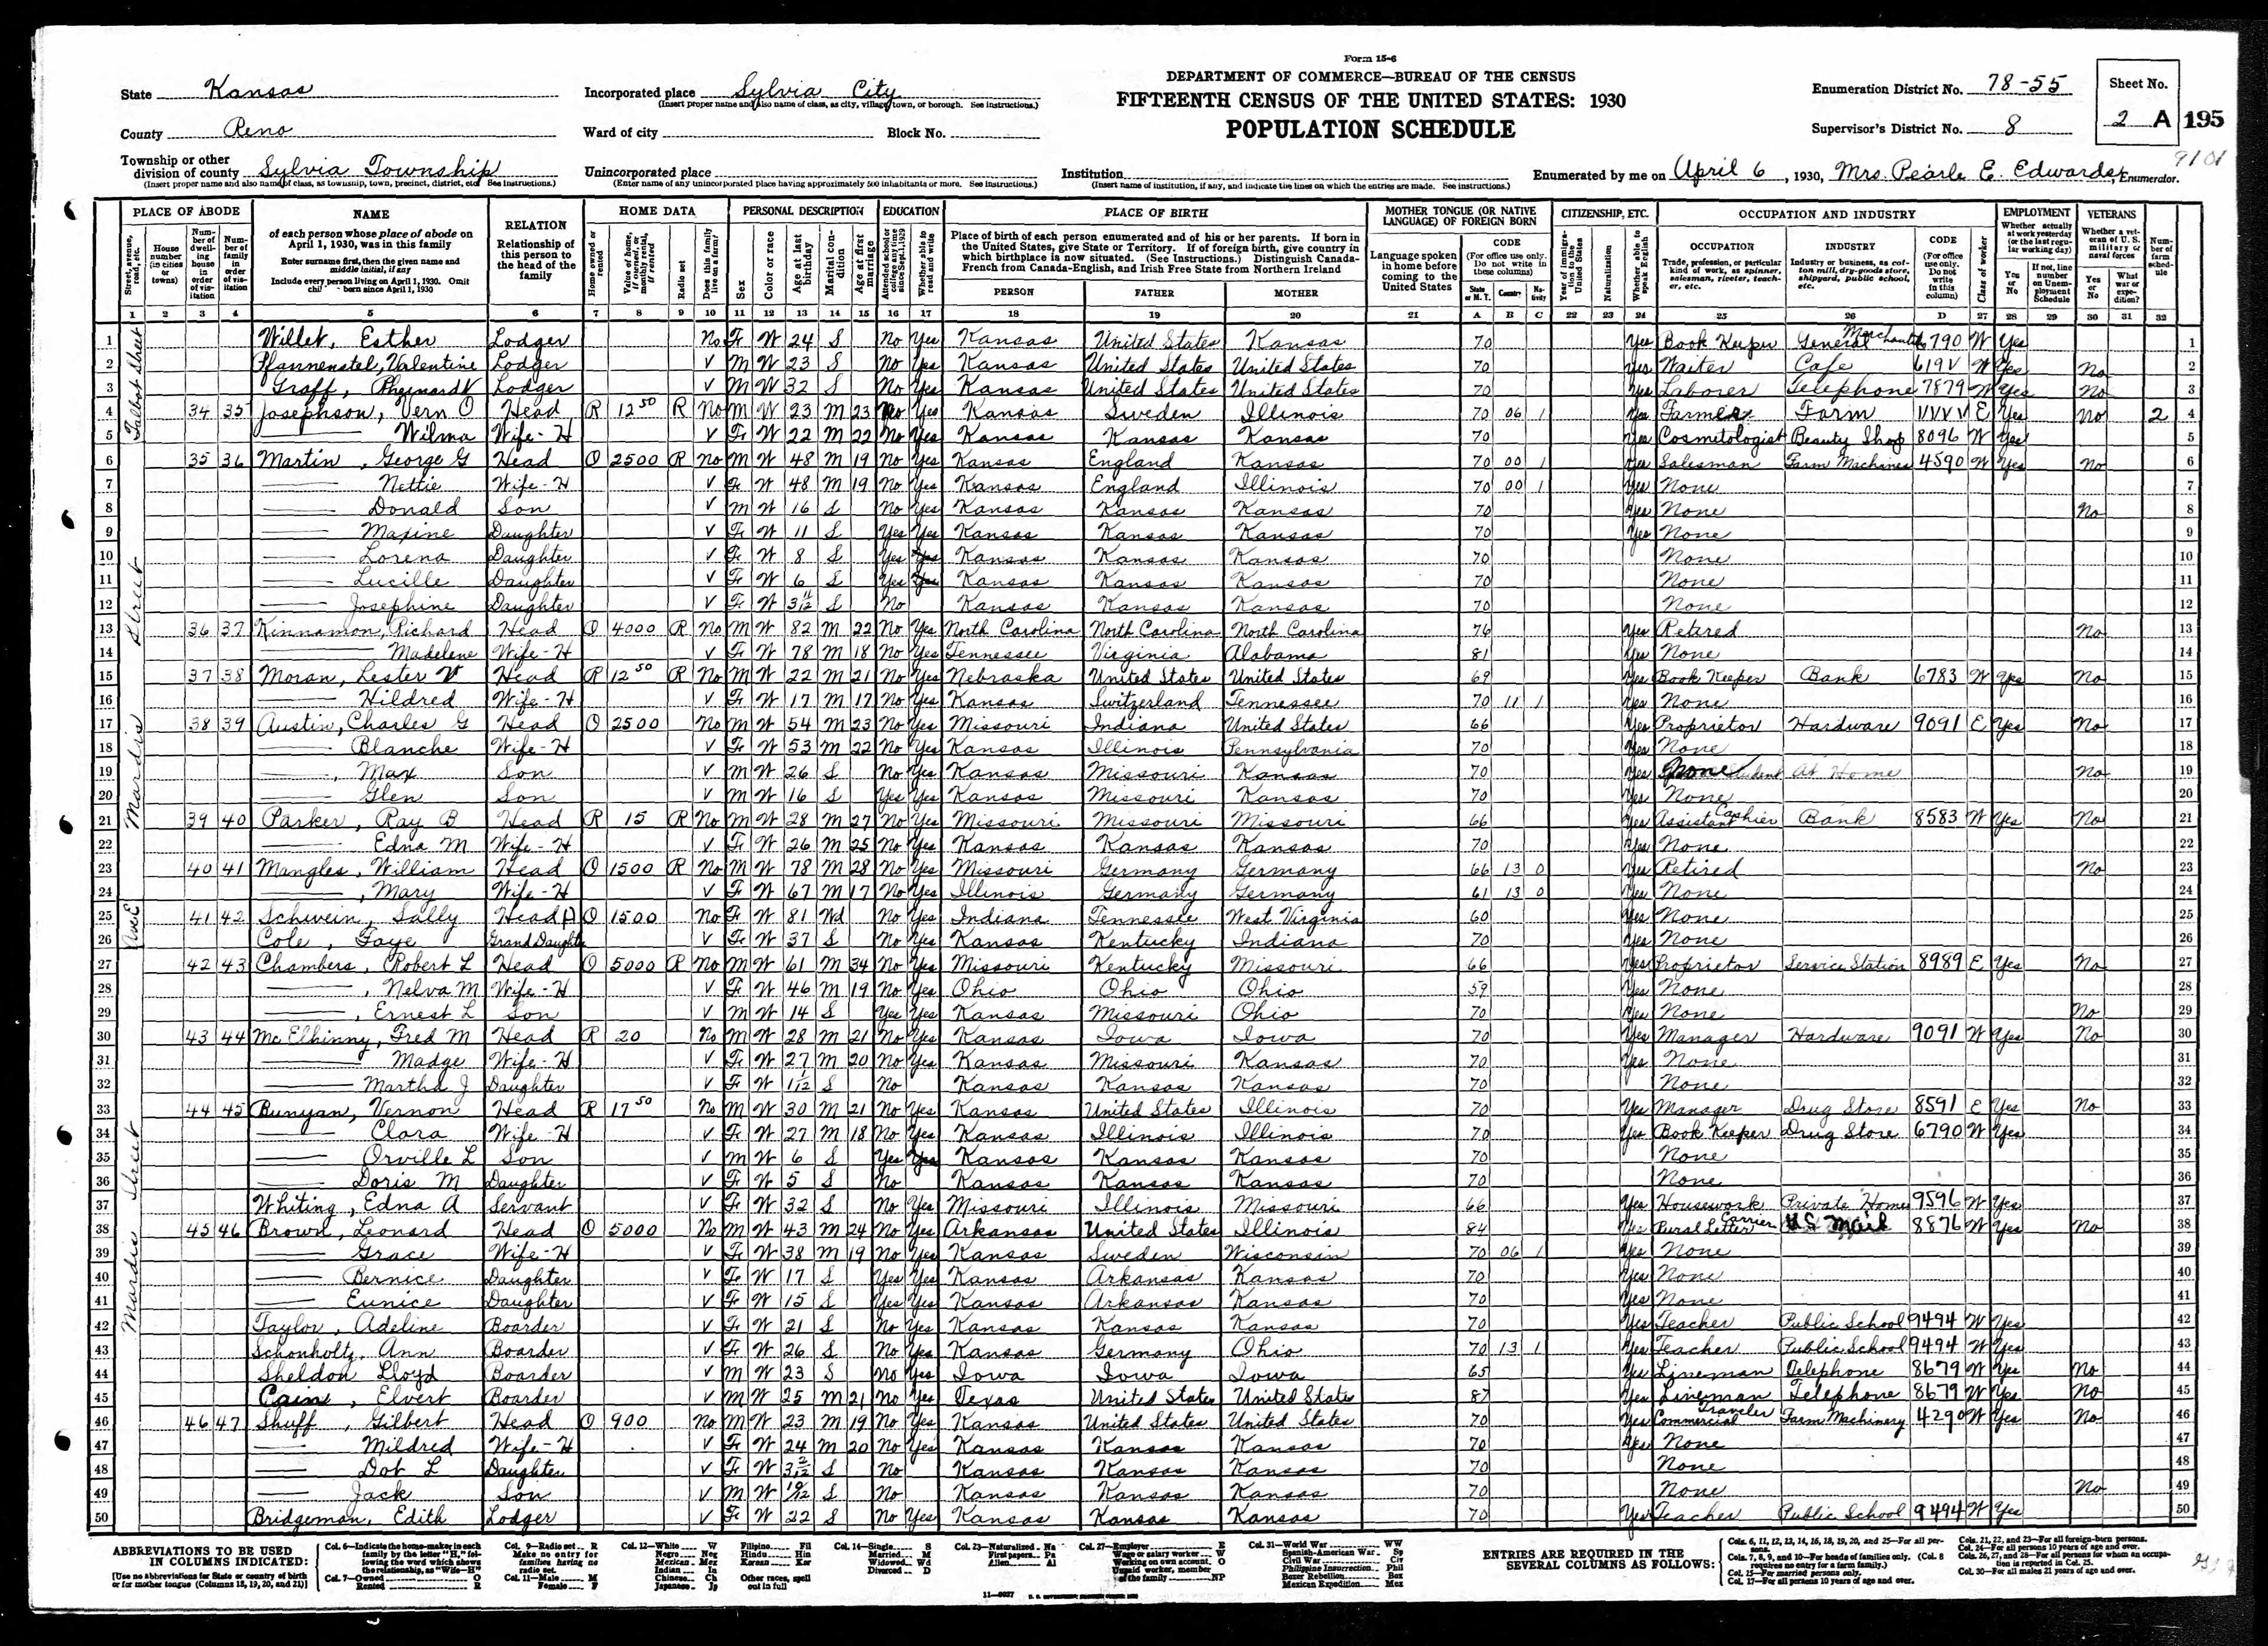 Form 15-6
DEPARTMENT OF COMMERCE—BUREAU OF THE CENSUS
FIFTEENTH CENSUS OF THE UNITED STATES: 1930
POPULATION SCHEDULE
State Kansas
County Reno
Township or other division of county Sylvia Township
(Insert proper name and also name of class, as township, town, precinct, district, etc. See instructions.)
Incorporated place Sylvia City
(Insert proper name and also name of class, as city, village, town, or borough. See instructions.)
Ward of city Block No.
Unincorporated place
(Enter name of any unincorporated place having approximately 500 inhabitants or more. See instructions.)
Institution
(Insert name of institution, if any, and indicate the lines on which the entries are made. See instructions.)
Enumeration District No. 78-55
Supervisor's District No. 8
Sheet No. 2 A 195
9101
Enumerated by me on April 6, 1930, Mrs. Pearle E. Edwards, Enumerator.
PLACE OF ABODE NAME RELATION HOME DATA PERSONAL DESCRIPTION EDUCATION PLACE OF BIRTH MOTHER TONGUE (OR NATIVE LANGUAGE) OF FOREIGN BORN CITIZENSHIP, ETC. OCCUPATION AND INDUSTRY EMPLOYMENT VETERANS
PERSON FATHER MOTHER
1 2 3 4 5 6 7 8 9 10 11 12 13 14 15 16 17 18 19 20 21 A B C 22 23 24 25 26 D 27 28 29 30 31 32
Talbot Street
1 Willet, Esther Lodger No F W 24 S No Yes Kansas United States Kansas 70 Yes Book Keeper General Merchants 6790 W Yes 1
2 Pfannenstel, Valentine Lodger V M W 23 S No Yes Kansas United States United States 70 Yes Waiter Cafe 619V W Yes No 2
3 Graff, Rheinardt Lodger V M W 32 S No Yes Kansas United States United States 70 Yes Laborer Telephone 7879 W Yes No 3
4 34 35 Josephson, Vern O Head R 12 50 R No M W 23 M 23 No Yes Kansas Sweden Illinois 70 06 1 Yes Farmer Farm VVVV E Yes No 2 4
5 Wilma Wife-H V F W 22 M 22 No Yes Kansas Kansas Kansas 70 Yes Cosmetologist Beauty Shop 8096 W Yes 5
Mardis Street
6 35 36 Martin, George G Head O 2500 R No M W 48 M 19 No Yes Kansas England Kansas 70 00 1 Yes Salesman Farm Machines 4590 W Yes No 6
7 Nettie Wife-H V F W 48 M 19 No Yes Kansas England Illinois 70 00 1 Yes None 7
8 Donald Son V M W 16 S No Yes Kansas Kansas Kansas 70 Yes None No 8
9 Maxine Daughter V F W 11 S Yes Yes Kansas Kansas Kansas 70 Yes None 9
10 Lorena Daughter V F W 8 S Yes Yes Kansas Kansas Kansas 70 None 10
11 Lucille Daughter V F W 6 S Yes Yes Kansas Kansas Kansas 70 None 11
12 Josephine Daughter V F W 3 11/12 S No Kansas Kansas Kansas 70 None 12
13 36 37 Kinnamon, Richard Head O 4000 R No M W 82 M 22 No Yes North Carolina North Carolina North Carolina 76 Yes Retired No 13
14 Madelene Wife-H V F W 78 M 18 No Yes Tennessee Virginia Alabama 81 Yes None 14
15 37 38 Moran, Lester V Head R 12 50 R No M W 22 M 21 No Yes Nebraska United States United States 69 Yes Book Keeper Bank 6783 W Yes No 15
16 Hildred Wife-H V F W 17 M 17 No Yes Kansas Switzerland Tennessee 70 11 1 Yes None 16
17 38 39 Austin, Charles G Head O 2500 No M W 54 M 23 No Yes Missouri Indiana United States 66 Yes Proprietor Hardware 9091 E Yes No 17
18 Blanche Wife-H V F W 53 M 22 No Yes Kansas Illinois Pennsylvania 70 Yes None 18
19 , Max Son V M W 26 S No Yes Kansas Missouri Kansas 70 Yes None Student At Home No 19
20 Glen Son V M W 16 S Yes Yes Kansas Missouri Kansas 70 Yes None 20
21 39 40 Parker, Ray B Head R 15 R No M W 28 M 27 No Yes Missouri Missouri Missouri 66 Yes Assistant Cashier Bank 8583 W Yes No 21
22 Edna M Wife-H V F W 26 M 25 No Yes Kansas Kansas Kansas 70 Yes None 22
23 40 41 Mangles, William Head O 1500 R No M W 78 M 28 No Yes Missouri Germany Germany 66 13 0 Yes Retired No 23
24 , Mary Wife-H V F W 67 M 17 No Yes Illinois Germany Germany 61 13 0 Yes None 24
Ave E
25 41 42 Schwein, Sally Head H O 1500 No F W 81 Wd No Yes Indiana Tennessee West Virginia 60 Yes None 25
26 Cole, Faye Grand Daughter V F W 37 S No Yes Kansas Kentucky Indiana 70 Yes None 26
27 42 43 Chambers, Robert L Head O 5000 R No M W 61 M 34 No Yes Missouri Kentucky Missouri 66 Yes Proprietor Service Station 8989 E Yes No 27
28 , Nelva M Wife-H V F W 46 M 19 No Yes Ohio Ohio Ohio 59 Yes None 28
29 , Ernest L Son V M W 14 S Yes Yes Kansas Missouri Ohio 70 Yes None No 29
30 43 44 McElhinny, Fred M Head R 20 No M W 28 M 21 No Yes Kansas Iowa Iowa 70 Yes Manager Hardware 9091 W Yes No 30
31 Madge Wife-H V F W 27 M 20 No Yes Kansas Missouri Kansas 70 Yes None 31
32 Martha J Daughter V F W 1 1/12 S No Kansas Kansas Kansas 70 None 32
Mardis Street
33 44 45 Bunyan, Vernon Head R 17 50 No M W 30 M 21 No Yes Kansas United States Illinois 70 Yes Manager Drug Store 8591 E Yes No 33
34 Clara Wife-H V F W 27 M 18 No Yes Kansas Illinois Illinois 70 Yes Book Keeper Drug Store 6790 W Yes 34
35 Orville L Son V M W 6 S Yes Yes Kansas Kansas Kansas 70 None 35
36 Doris M Daughter V F W 5 S No Kansas Kansas Kansas 70 None 36
37 Whiting, Edna A Servant V F W 32 S No Yes Missouri Illinois Missouri 66 Yes Housework Private Home 9596 W Yes 37
38 45 46 Brown, Leonard Head O 5000 No M W 43 M 24 No Yes Arkansas United States Illinois 84 Yes Rural Letter Carrier U.S. Mail 8876 W Yes No 38
39 Grace Wife-H V F W 38 M 19 No Yes Kansas Sweden Wisconsin 70 06 1 Yes None 39
40 Bernice Daughter V F W 17 S Yes Yes Kansas Arkansas Kansas 70 Yes None 40
41 Eunice Daughter V F W 15 S Yes Yes Kansas Arkansas Kansas 70 Yes None 41
42 Taylor, Adeline Boarder V F W 21 S No Yes Kansas Kansas Kansas 70 Yes Teacher Public School 9494 W Yes 42
43 Schonholtz, Ann Boarder V F W 26 S No Yes Kansas Germany Ohio 70 13 1 Yes Teacher Public School 9494 W Yes 43
44 Sheldon Lloyd Boarder V M W 23 S No Yes Iowa Iowa Iowa 65 Yes Lineman Telephone 8679 W Yes No 44
45 Cain, Elvert Boarder V M W 25 M 21 No Yes Texas United States United States 87 Yes Lineman Telephone 8679 W Yes No 45
46 46 47 Shuff, Gilbert Head O 900 No M W 23 M 19 No Yes Kansas United States United States 70 Yes Commercial Traveler Farm Machinery 4290 W Yes No 46
47 Mildred Wife-H V F W 24 M 20 No Yes Kansas Kansas Kansas 70 Yes None 47
48 Dot L Daughter V F W 3 2/12 S No Kansas Kansas Kansas 70 None 48
49 Jack Son V M W 10/12 S No Kansas Kansas Kansas 70 None No 49
50 Bridgeman, Edith Lodger V F W 22 S No Yes Kansas Kansas Kansas 70 Yes Teacher Public School 9494 W Yes 50
ABBREVIATIONS TO BE USED IN COLUMNS INDICATED:
[Use no abbreviations for State or country of birth or for mother tongue (Columns 18, 19, 20, and 21)]
ENTRIES ARE REQUIRED IN THE SEVERAL COLUMNS AS FOLLOWS: